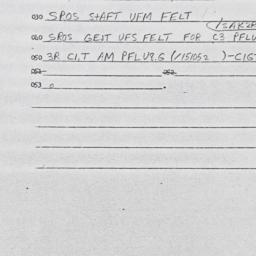 030 SPOS SHAFT UFM FELT
040 SPOS GEJT UFS FELT FOR C3 PFLU
050 3R C1.T AM PFLU9.G (/151052 )-C1G
051 052
053 0 .